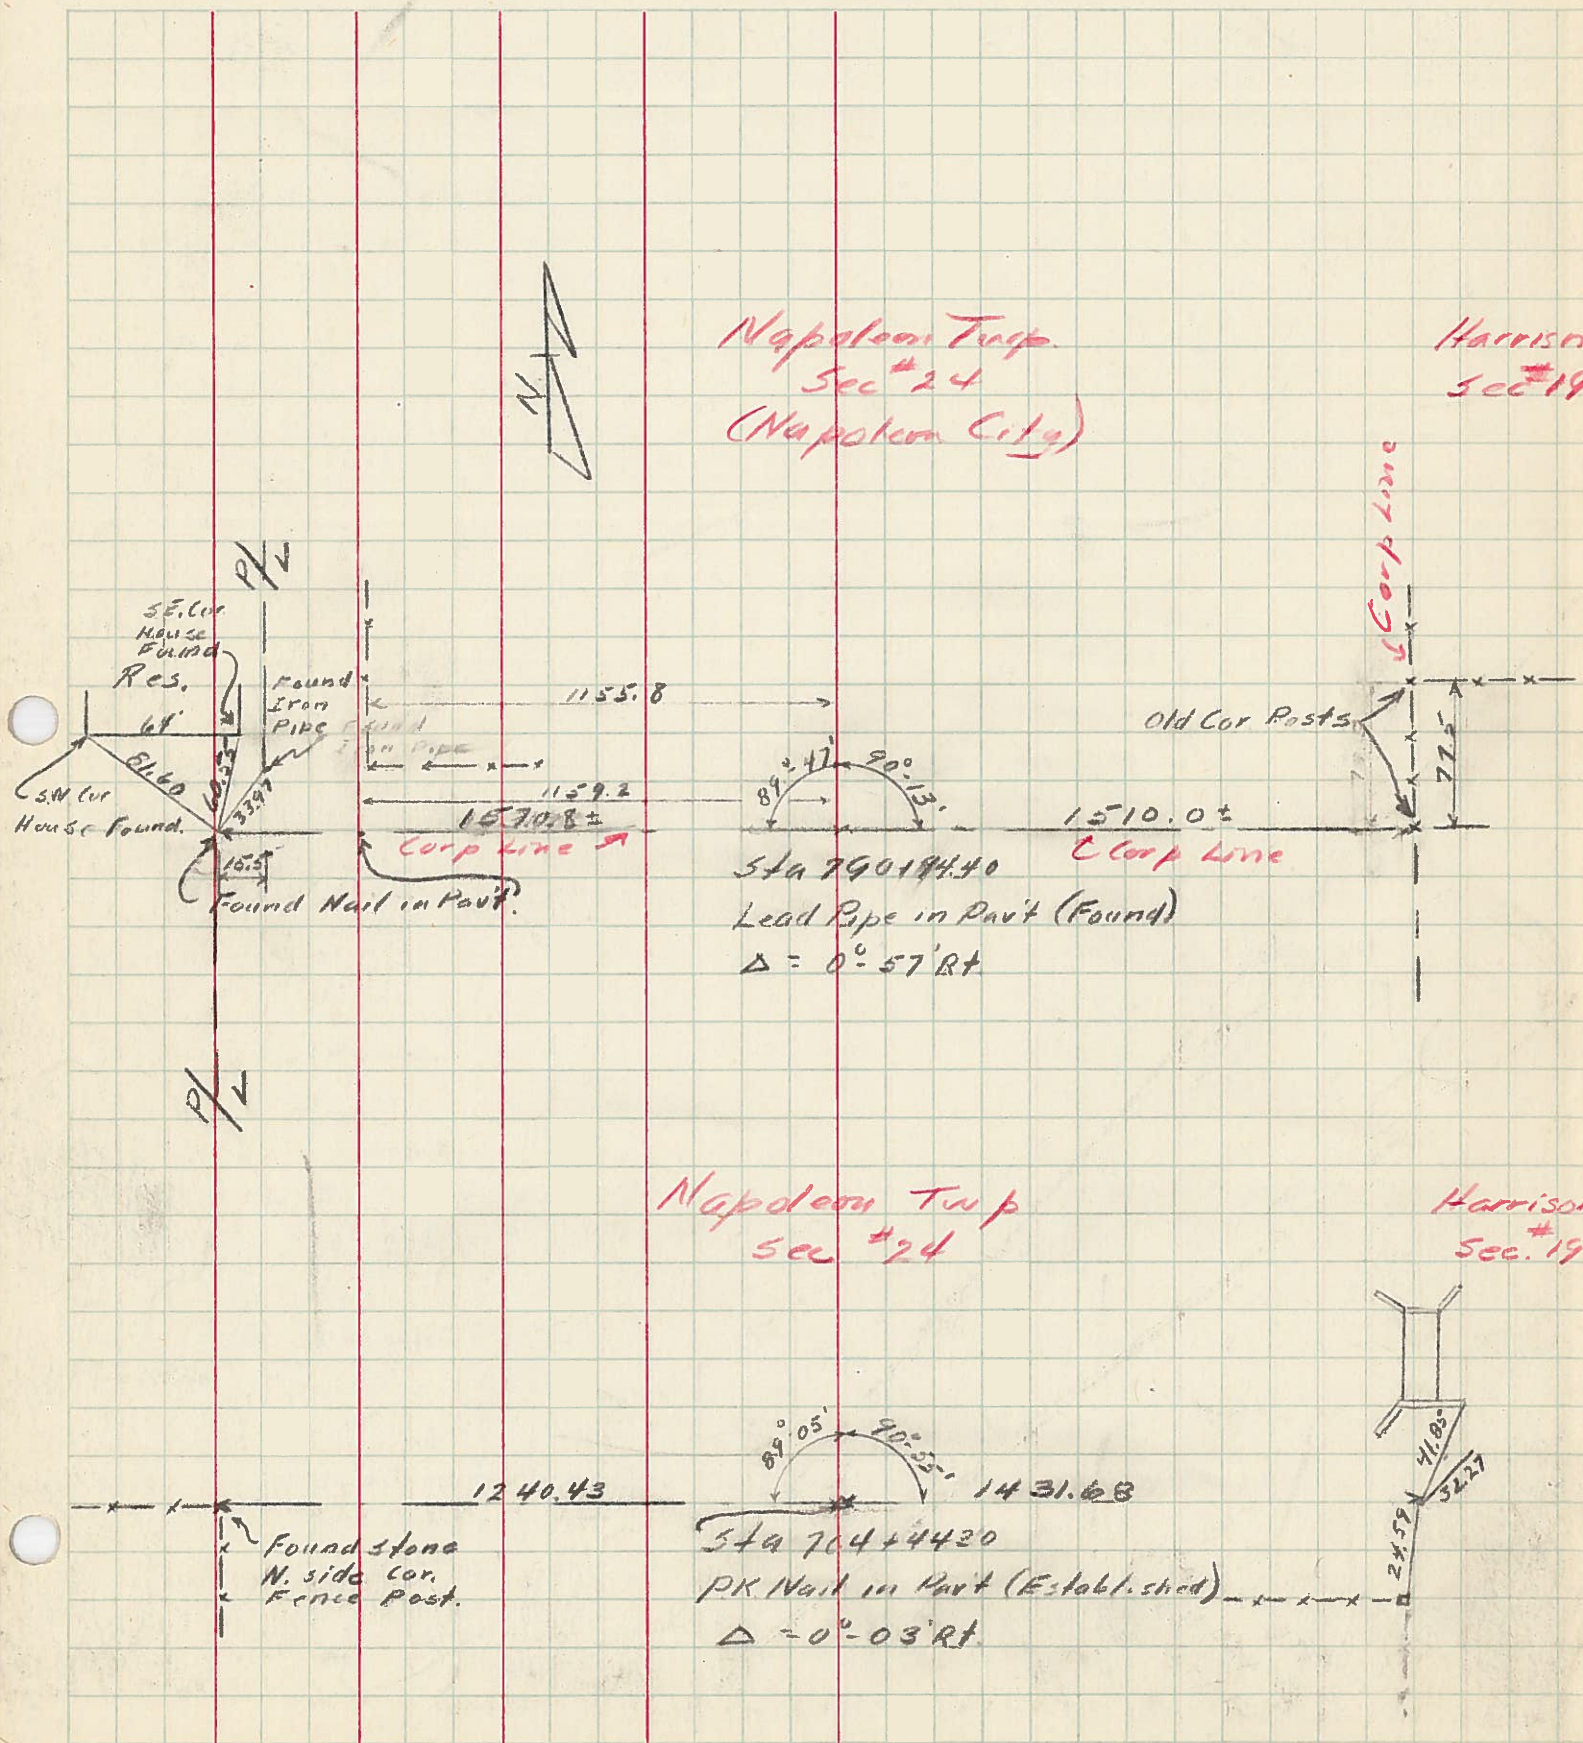 Napoleon Twp.
Sec #24
(Napoleon City)
Harrison
Sec #19
N
Corp Line
P/L
S.E. Cor.
House
Found
Res.
64'
Found
Iron
Pipe
Found
Iron Pipe
1155.8
Old Cor Posts
77.5
81.60
60.55
33.97
S.W. Cor
House Found.
1159.2
1570.8±
Corp Line
89°-47'
90°-13'
1510.0±
Corp Line
15.5
Found Nail in Pav't.
Sta 790+94.40
Lead Pipe in Pav't (Found)
Δ = 0°-57' Rt
P/L
Napoleon Twp
Sec #24
Harrison
Sec. #19
89°-05'
90°-55'
41.85
52.27
1240.43
1431.68
24.59
Found stone
N. side Cor.
Fence Post.
Sta 764+4420
PK Nail in Pav't (Established)
Δ = 0°-03' Rt.